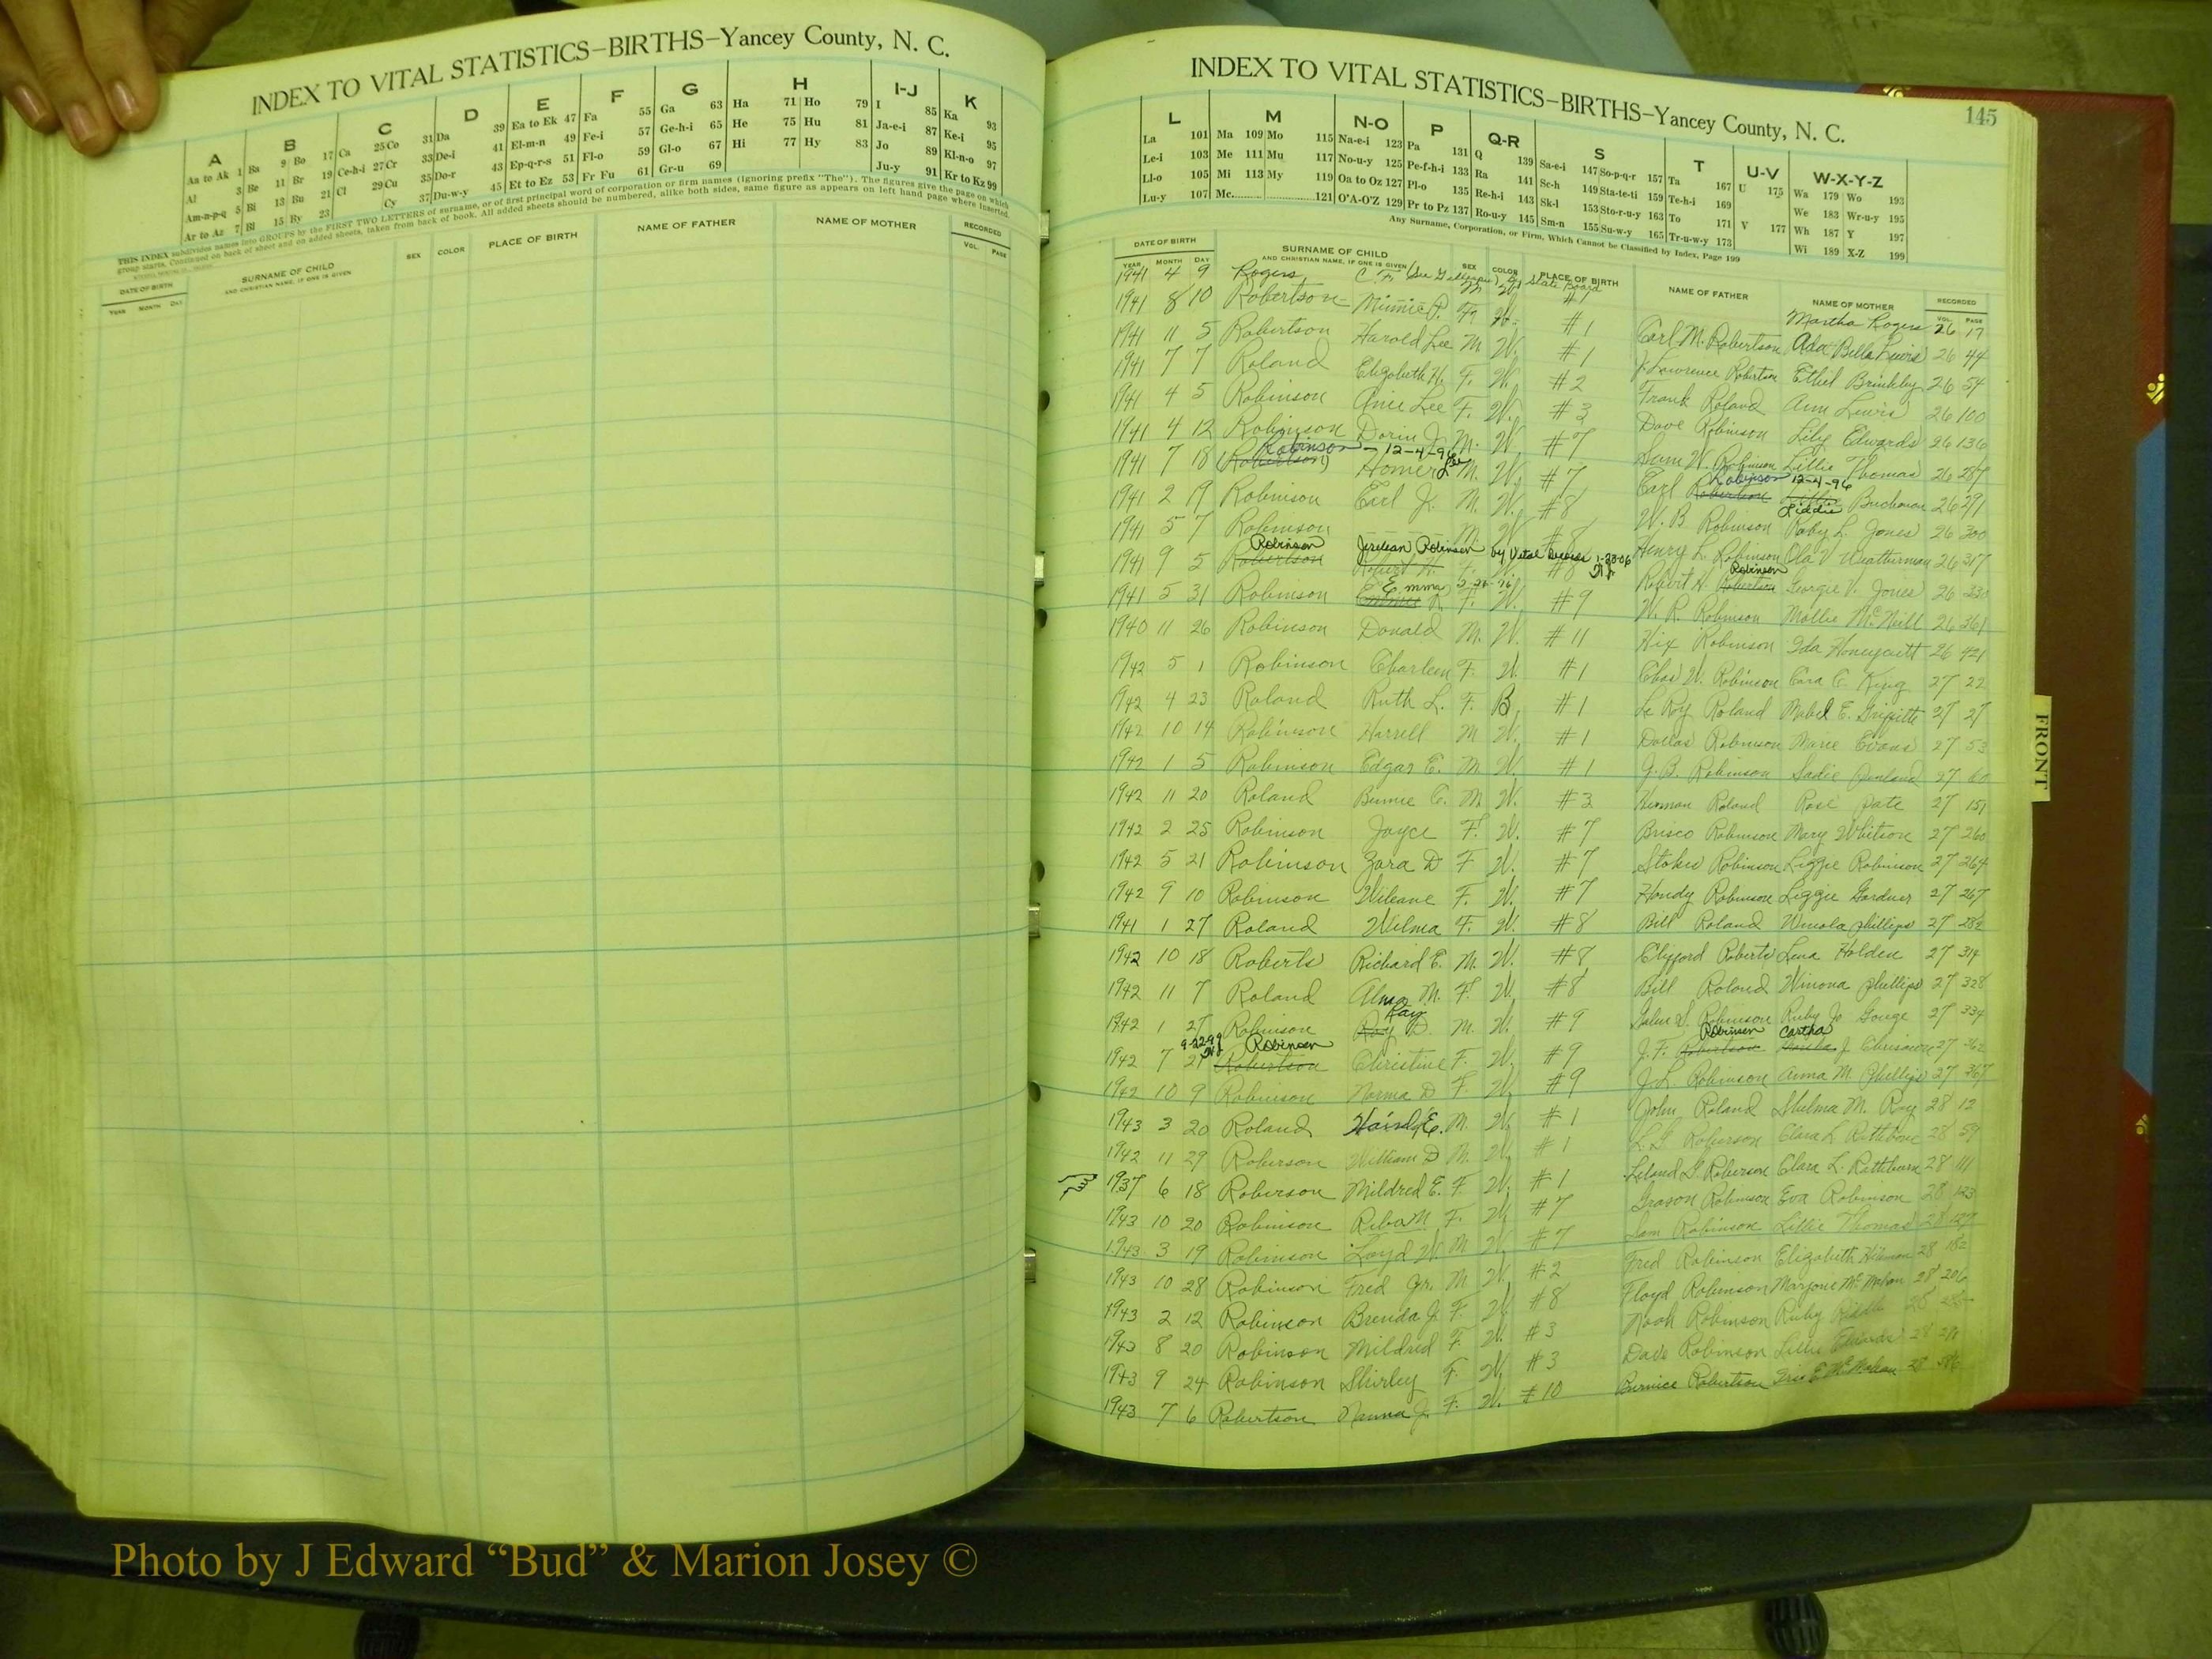 INDEX TO VITAL STATISTICS–BIRTHS–Yancey County, N. C.
A B C D E F G H I-J K
Aa to Ak 1 Ba 9 Bo 17 Ca 25 Co 31 Da 39 Ea to Ek 47 Fa 55 Ga 63 Ha 71 Ho 79 I 85 Ka 93
Al 3 Be 11 Br 19 Ce-h-i 27 Cr 33 De-i 41 El-m-n 49 Fe-i 57 Ge-h-i 65 He 75 Hu 81 Ja-e-i 87 Ke-i 95
Am-n-p-q 5 Bi 13 Bu 21 Cl 29 Cu 35 Do-r 43 Ep-q-r-s 51 Fl-o 59 Gl-o 67 Hi 77 Hy 83 Jo 89 Kl-n-o 97
Ar to Az 7 Bl 15 By 23 Cy 37 Du-w-y 45 Et to Ez 53 Fr Fu 61 Gr-u 69 Ju-y 91 Kr to Kz 99
THIS INDEX subdivides names into GROUPS by the FIRST TWO LETTERS of surname, or of first principal word of corporation or firm names (ignoring prefix "The"). The figures give the page on which
group starts. Continued on back of sheet and on added sheets, taken from back of book. All added sheets should be numbered, alike both sides, same figure as appears on left hand page where inserted.
DATE OF BIRTH SURNAME OF CHILD SEX COLOR PLACE OF BIRTH NAME OF FATHER NAME OF MOTHER RECORDED
YEAR MONTH DAY AND CHRISTIAN NAME, IF ONE IS GIVEN VOL. PAGE
INDEX TO VITAL STATISTICS–BIRTHS–Yancey County, N. C. 145
L M N-O P Q-R S T U-V W-X-Y-Z
La 101 Ma 109 Mo 115 Na-e-i 123 Pa 131 Q 139 Sa-e-i 147 So-p-q-r 157 Ta 167 U 175 Wa 179 Wo 193
Le-i 103 Me 111 Mu 117 No-u-y 125 Pe-f-h-i 133 Ra 141 Sc-h 149 Sta-te-ti 159 Te-h-i 169 We 183 Wr-u-y 195
Ll-o 105 Mi 113 My 119 Oa to Oz 127 Pl-o 135 Re-h-i 143 Sk-l 153 Sto-r-u-y 163 To 171 V 177 Wh 187 Y 197
Lu-y 107 Mc 121 O'A-O'Z 129 Pr to Pz 137 Ro-u-y 145 Sm-n 155 Su-w-y 165 Tr-u-w-y 173 Wi 189 X-Z 199
Any Surname, Corporation, or Firm, Which Cannot be Classified by Index, Page 199
DATE OF BIRTH SURNAME OF CHILD SEX COLOR PLACE OF BIRTH NAME OF FATHER NAME OF MOTHER RECORDED
YEAR MONTH DAY AND CHRISTIAN NAME, IF ONE IS GIVEN VOL. PAGE
1941 4 9 Rogers State Board #7 Martha Rogers 26 17
1941 8 10 Robertson F. W. #1 Carl M. Robertson 26 44
1941 11 5 Robertson Harold Lee M. W. #1 Lawrence Robertson Ethel Brinkley 26 54
1941 7 7 Roland Elizabeth H. F. W. #2 Frank Roland Ann Lewis 26 100
1941 4 5 Robinson Lee F. W. #3 Dave Robinson Lily Edwards 26 136
1941 4 12 Robinson M. W. #7 Sam W. Robinson Lillie Thomas 26 287
Robinson – 12-4-96 Robinson 12-4-96
1941 7 18 Robertson Homer Lee M. W. #7 Carl Robertson Liddie Buchanan 26 291
1941 2 19 Robinson Earl Jr. M. W. #8 W. B. Robinson Ruby L. Jones 26 300
1941 5 7 Robinson M. W. #8 Henry L. Robinson Ola V Weatherman 26 317
Robinson Jerelean Robinson by Vital Records 1-23-06 Robinson
1941 9 5 Robertson F. #8 Robert H. Robertson Georgie V. Jones 26 330
1941 5 31 Robinson Emma F. W. #9 W. R. Robinson Mollie McNeill 26 361
1940 11 26 Robinson Donald M. W. #11 Hix Robinson Ida Honeycutt 26 421
1942 5 1 Robinson Charleen F. W. #1 Chas W. Robinson Cara C. King 27 22
1942 4 23 Roland Ruth L. F. B #1 Le Roy Roland Mabel E. Griffith 27 27
1942 10 14 Robinson Harrell M W. #1 Dallas Robinson Marie Evans 27 53
1942 1 5 Robinson Edgar E. M. W. #1 G. B. Robinson Sadie Penland 27 60
1942 11 20 Roland C. M. W. #3 Herman Roland Rose Pate 27 151
1942 2 25 Robinson Joyce F. W. #7 Brisco Robinson Mary Whitson 27 260
1942 5 21 Robinson Zora D F W. #7 Stokes Robinson Lizzie Robinson 27 264
1942 9 10 Robinson Wileane F. W. #7 Handy Robinson Lizzie Gardner 27 267
1941 1 27 Roland Wilma F. W. #8 Bill Roland Winola Phillips 27 282
1942 10 18 Roberts Richard E. M. W. #8 Clifford Roberts Lena Holden 27 314
1942 11 7 Roland Alma M. F. W. #8 Bill Roland Winona Phillips 27 328
1942 1 27 Robinson Ray D. M. W. #9 Robinson Ruby Jo Gouge 27 334
9-22-99 Robinson Robinson Cartha
1942 7 27 Robertson Christine F. W. #9 J. F. Robertson J. Chrisawn 27 362
1942 10 9 Robinson Norma D F. W. #9 J. L. Robinson Anna M. Phillips 27 367
1943 3 20 Roland E. M. W. #1 John Roland Thelma M. Ray 28 12
1942 11 29 Roberson William D M. W. #1 L. G. Roberson Clara L. Rathbone 28 59
1937 6 18 Roberson Mildred E. F. W. #1 Leland G. Roberson Clara L. Rathburn 28 111
1943 10 20 Robinson Reba M F. W. #7 Grason Robinson Eva Robinson 28 123
1943 3 19 Robinson Loyd W M W. #7 Sam Robinson Lillie Thomas 28 127
1943 10 28 Robinson Fred Jr. M W. #2 Fred Robinson Elizabeth 28 182
1943 2 12 Robinson Brenda J. F. W. #8 Floyd Robinson Marjorie McMahan 28 206
1943 8 20 Robinson Mildred F. W. #3 Noah Robinson Ruby Riddle 28
1943 9 24 Robinson Shirley F. W. #3 Dave Robinson Lillie Edwards 28
1943 7 6 Robertson J. F. W. #10 Burnice Robertson McMahan 28
FRONT
Photo by J Edward “Bud” & Marion Josey ©